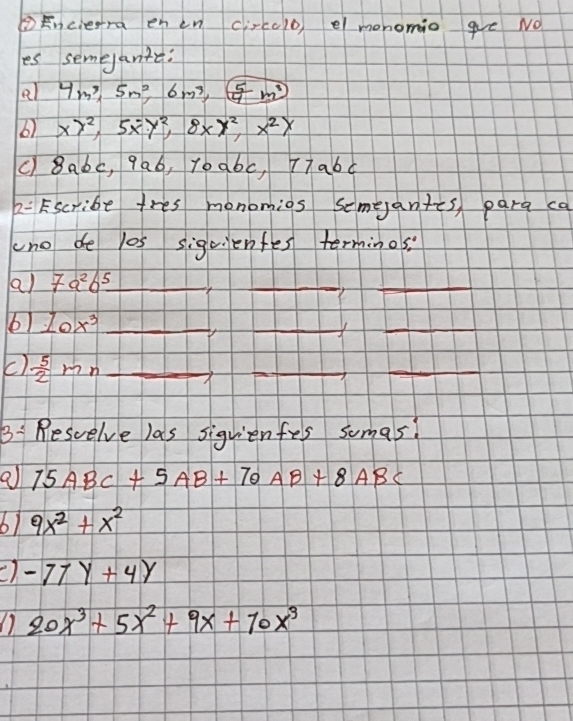 ① Encierra en un circulo, el monomio que NO
es semejante:
a) 4m³, 5m², 6m³, 5/4 m³
b) xy², 5x²y², 8xy², x²y
c) 8abc, 9ab, 10abc, 11abc
2= Escribe tres monomios semejantes, para ca
uno de los siguientes terminos:
a) 7a²b⁵ ______, ______, ______
b) 10x³ ______, ______, ______
c) 5/2 mn ______, ______, ______
3= Resuelve las siguientes sumas:
a) 15ABC + 5AB + 10AB + 8ABC
b) 9x² + x²
c) -11y + 4y
20x³ + 5x² + 9x + 10x³